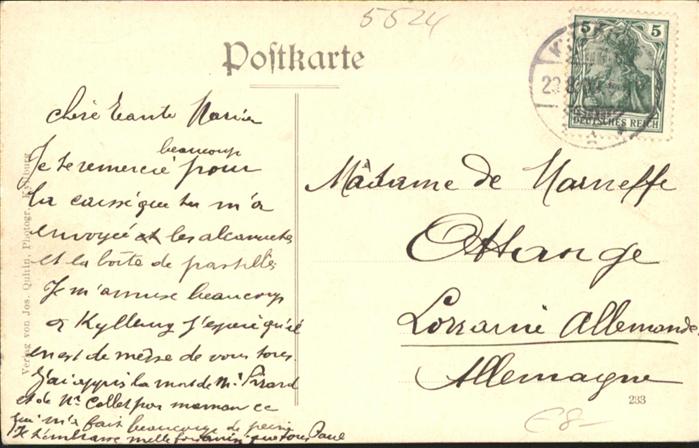 5524
Postkarte
5
DEUTSCHES REICH
chère tante Maria
Je te remercie beaucoup pour
la caisse que tu m'a
envoyée et les
et la boite de pastilles
Je m'amuse beaucoup
a Kyllburg J'espère qu'il
en est de même de vous tous.
J'ai appris la mort de Mr
et de Mr Collet par maman ce
qui m'a fait beaucoup de peine
Je t'embrasse mille fois ainsi que tous Paul
Madame de Marneffe
Ottange
Lorraine Allemande
Allemagne
233
Verlag von Jos. Quirin, Photogr. Kyllburg